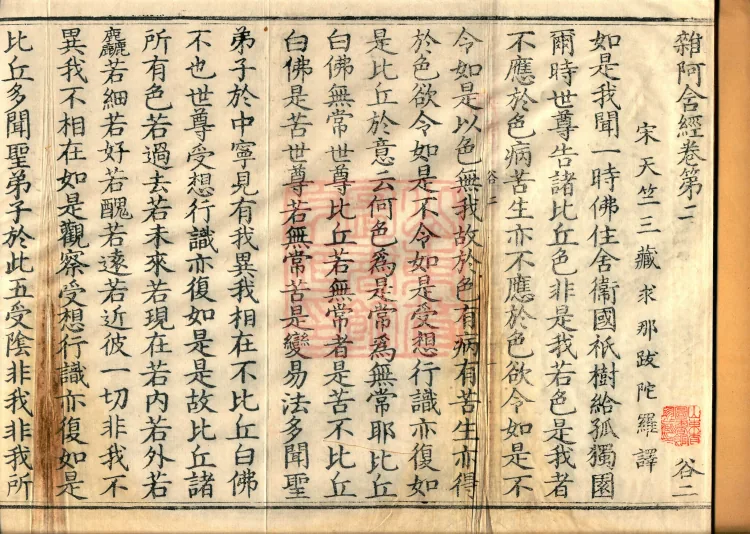 雜阿含經卷第二
谷二
宋天竺三藏求那跋陀羅譯
如是我聞一時佛住舍衞國祇樹給孤獨園
爾時世尊告諸比丘色非是我若色是我者
不應於色病苦生亦不應於色欲令如是不
令如是以色無我故於色有病有苦生亦得
谷二
於色欲令如是不令如是受想行識亦復如
是比丘於意云何色爲是常爲無常耶比丘
白佛無常世尊比丘若無常者是苦不比丘
白佛是苦世尊若無常苦是變易法多聞聖
弟子於中寧見有我異我相在不比丘白佛
不也世尊受想行識亦復如是是故比丘諸
所有色若過去若未來若現在若內若外若
麤若細若好若醜若遠若近彼一切非我不
異我不相在如是觀察受想行識亦復如是
比丘多聞聖弟子於此五受陰非我非我所